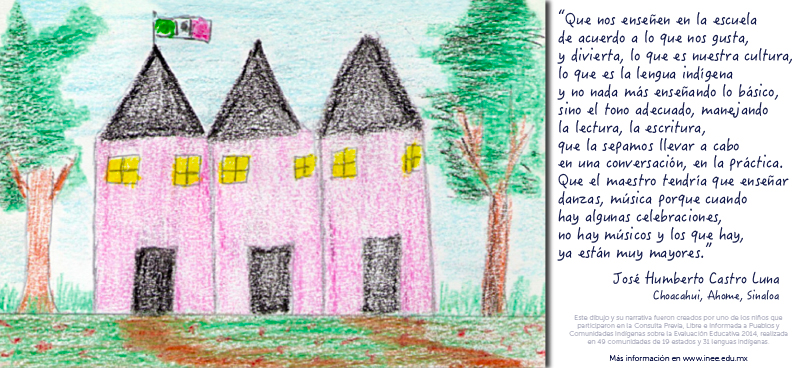 “Que nos enseñen en la escuela
de acuerdo a lo que nos gusta,
y divierta, lo que es nuestra cultura,
lo que es la lengua indígena
y no nada más enseñando lo básico,
sino el tono adecuado, manejando
la lectura, la escritura,
que la sepamos llevar a cabo
en una conversación, en la práctica.
Que el maestro tendría que enseñar
danzas, música porque cuando
hay algunas celebraciones,
no hay músicos y los que hay,
ya están muy mayores.”
José Humberto Castro Luna
Choacahui, Ahome, Sinaloa
Este dibujo y su narrativa fueron creados por uno de los niños que
participaron en la Consulta Previa, Libre e Informada a Pueblos y
Comunidades Indígenas sobre la Evaluación Educativa 2014, realizada
en 49 comunidades de 19 estados y 31 lenguas indígenas.
Más información en www.inee.edu.mx